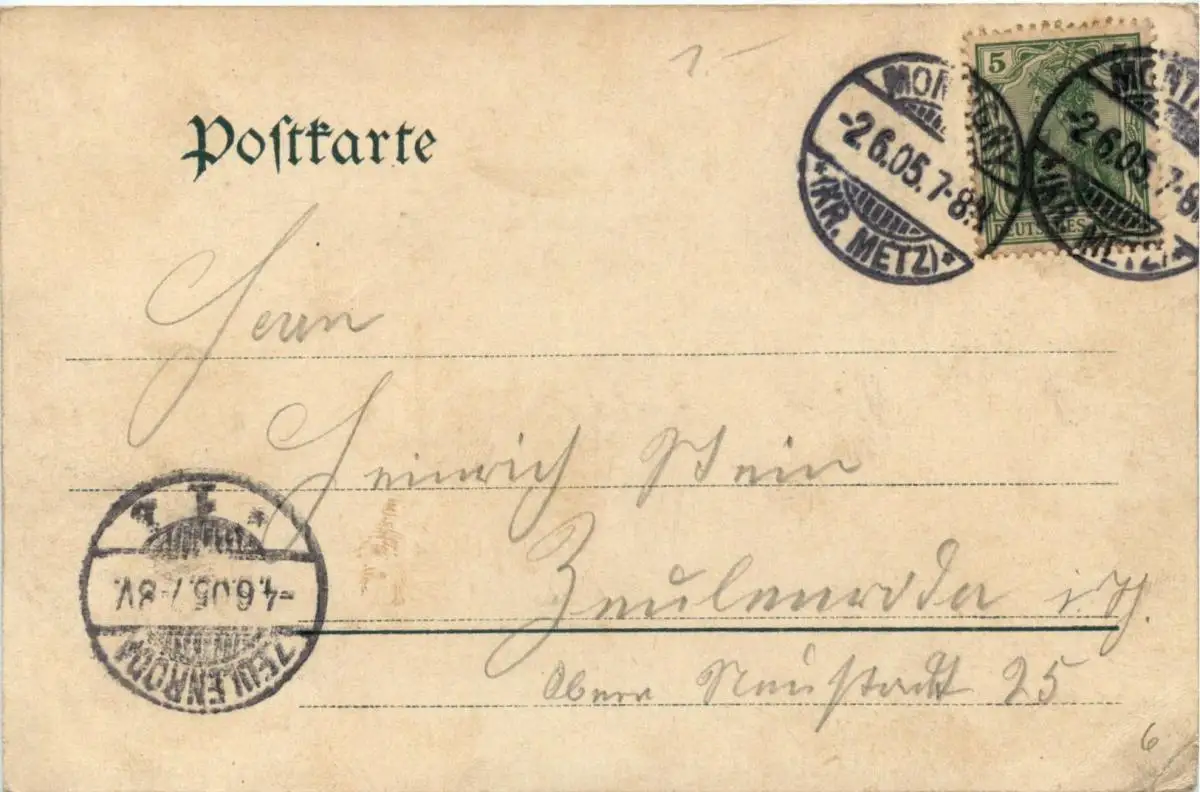 1.-
Postkarte
5 5
DEUTSCHES
MONTIGNY
-2.6.05. 7-8N.
*(KR. METZ)*
MONT
-2.6.05. 7-8
*(KR. METZ)*
Herrn
Heinrich Stein
Zeulenroda i. Th.
Obere Neustadt 25
ZEULENRODA
-4.6.05. 7-8V.
* 1
6